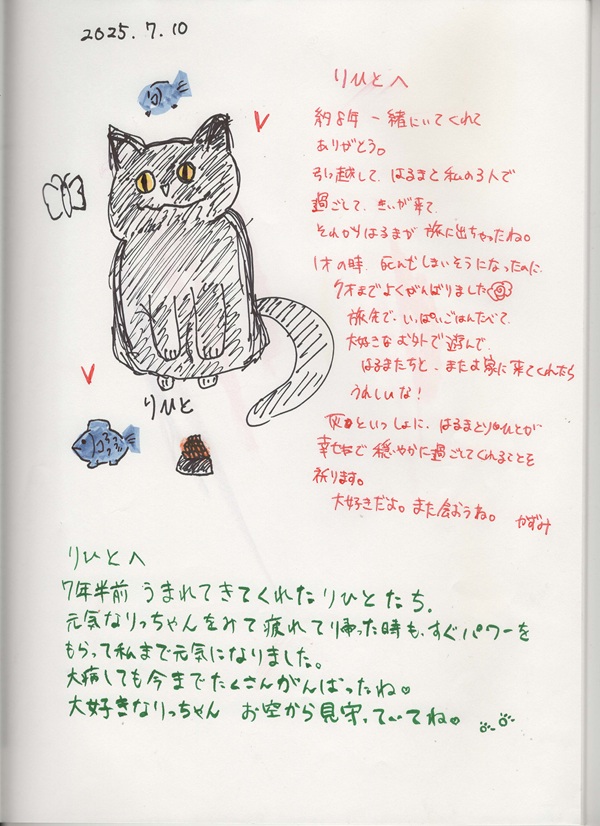 2025.7.10
りひとへ
約8年 一緒にいてくれて
ありがとう。
引っ越して、はるまと私の3人で
過ごして、きいが来て、
それからはるまが旅に出ちゃったね。
1才の時、死んでしまいそうになったのに、
7才までよくがんばりました
旅先で、いっぱいごはんたべて、
大好きなお外で遊んで、
はるまたちと、またお家に来てくれたら
うれしいな!
といっしょに、はるまとりひとが
幸せで穏やかに過ごしてくれることを
祈ります。
大好きだよ。また会おうね。 かずみ
りひと
りひとへ
7年半前 うまれてきてくれたりひとたち。
元気なりっちゃんをみて疲れて帰った時も、すぐパワーを
もらって私まで元気になりました。
大病しても今までたくさんがんばったね♡
大好きなりっちゃん お空から見守っていてね♡